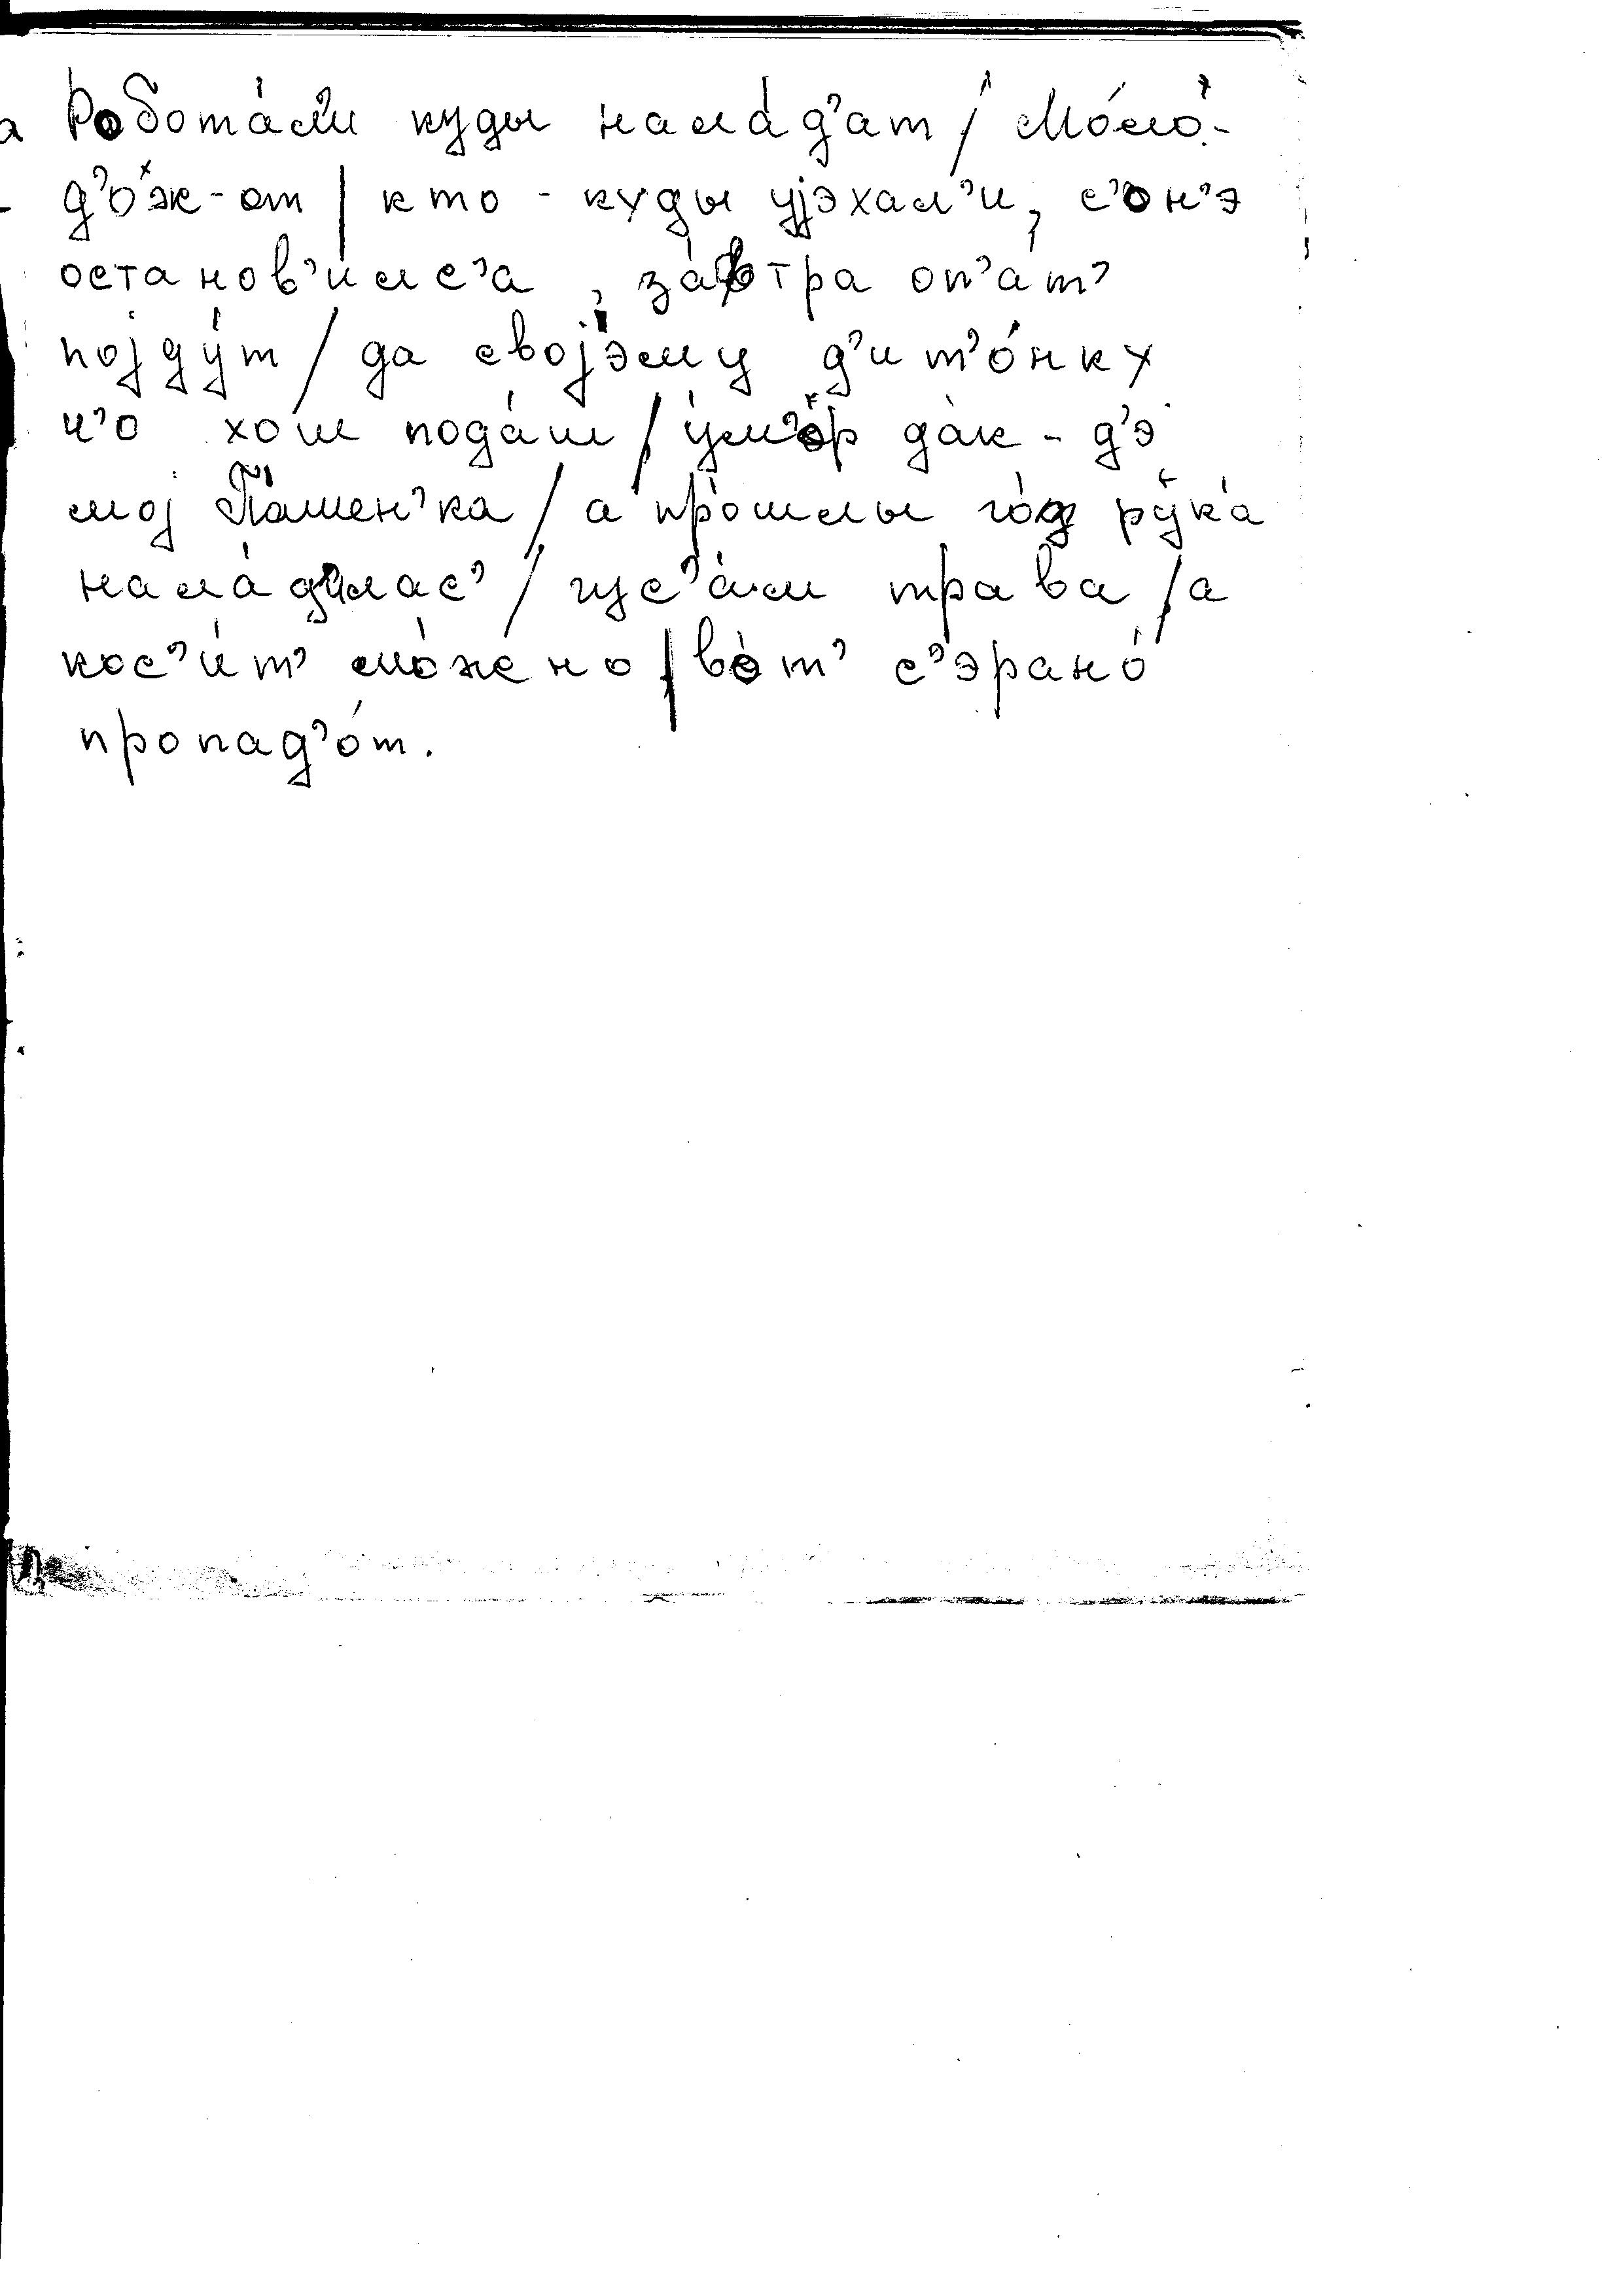 Робота́л'и куды нала́д'ат / Мо́ло-
д'о́ж-от | кто - куды уjэхал'и, с'он'э
останов'и́лс'а, за́втра оп'а́т'
поjду́т / да своjэ́му д'ит'о́нку
ч'о хо́ш пода́ш / у́м'ор да́к - д'э
моj Па́шен'ка / а про́шлы го́д рука́
нала́д'илас' / гус'а́м трава / а
кос'и́т' мо́жно / во́т' с'эрано́
пропад'о́т.